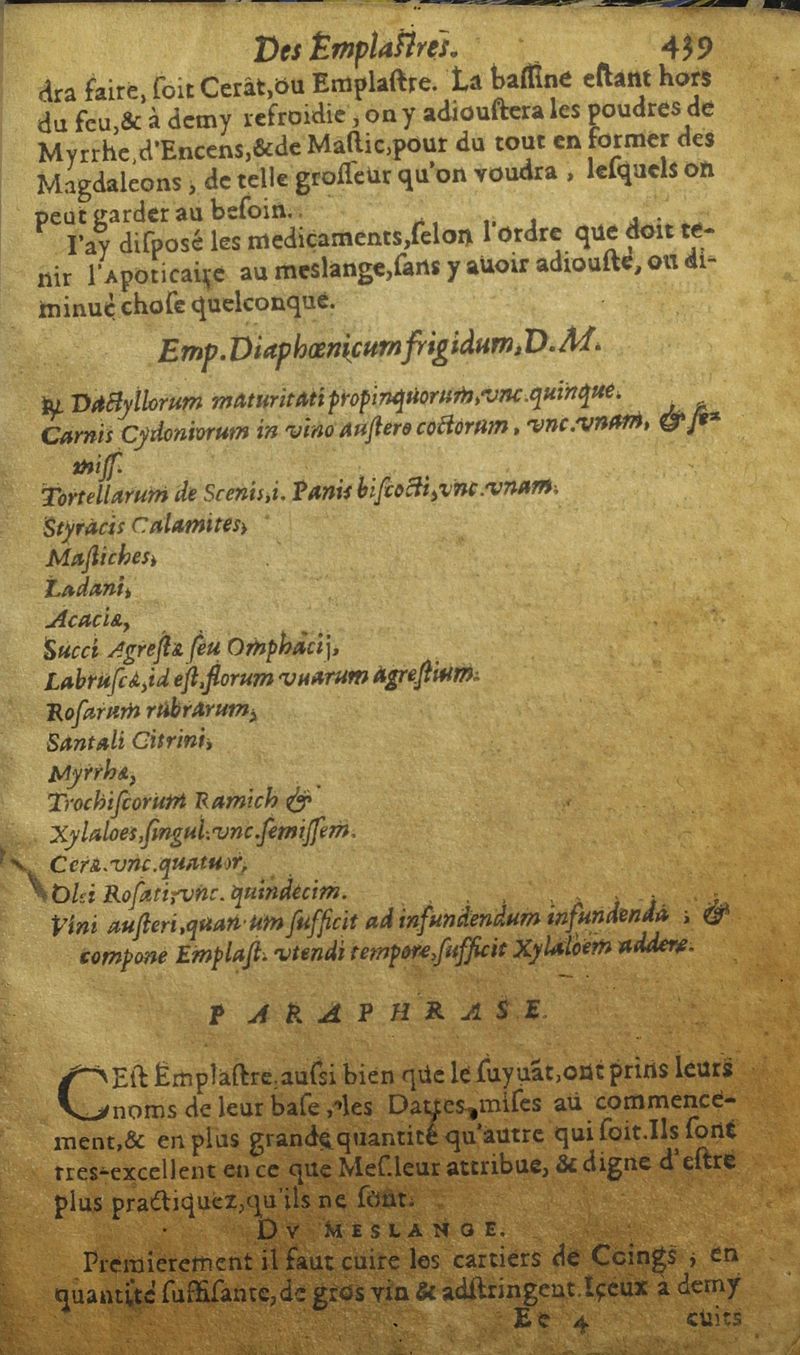 Des Emplaſtres. 439
dra faire, ſoit Cerat, ou Emplaſtre. La baſſine eſtant hors
du feu, & à demy refroidie, on y adiouſtera les poudres de
Myrrhe, d'Encens, & de Maſtic, pour du tout en former des
Magdaleons, de telle groſſeur qu'on voudra, leſquels on
peut garder au beſoin.
I'ay diſposé les medicaments, ſelon l'ordre que doit te-
nir l'Apoticaire au meslange, ſans y auoir adiouſté, ou di-
minué choſe quelconque.
Emp. Diaphœnicum frigidum, D. M.
℞. Dactyllorum maturitati propinquorum, vnc. quinque.
Carnis Cydoniorum in vino auſtero coctorum, vnc. vnam, & ſe-
miſſ.
Tortellarum de Scenis, i. Panis biſcocti, vnc. vnam.
Styracis Calamites,
Maſtiches,
Ladani,
Acaciæ,
Succi Agreſtæ ſeu Omphacij,
Labruſcæ, id eſt, florum vuarum agreſtium.
Roſarum rubrarum,
Santali Citrini,
Myrrhæ,
Trochiſcorum Ramich &
Xylaloes, ſingul. vnc. ſemiſſem.
Ceræ. vnc. quatuor,
Olei Roſati, vnc. quindecim.
Vini auſteri, quantum ſufficit ad infundendum infundenda ; &
compone Emplaſt. vtendi tempore, ſufficit Xylaloem addere.
PARAPHRASE.
CEſt Emplaſtre, auſsi bien que le ſuyuãt, ont prins leurs
noms de leur baſe, les Dattes, miſes au commence-
ment, & en plus grande quantité qu'autre qui ſoit. Ils ſont
tres-excellent en ce que Meſ. leur attribue, & digne d'eſtre
plus practiquez, qu'ils ne ſont.
DV MESLANGE.
Premierement il faut cuire les cartiers de Coings, en
quantité ſuffiſante, de gros vin & adſtringent. Iceux a demy
Ee 4 cuits